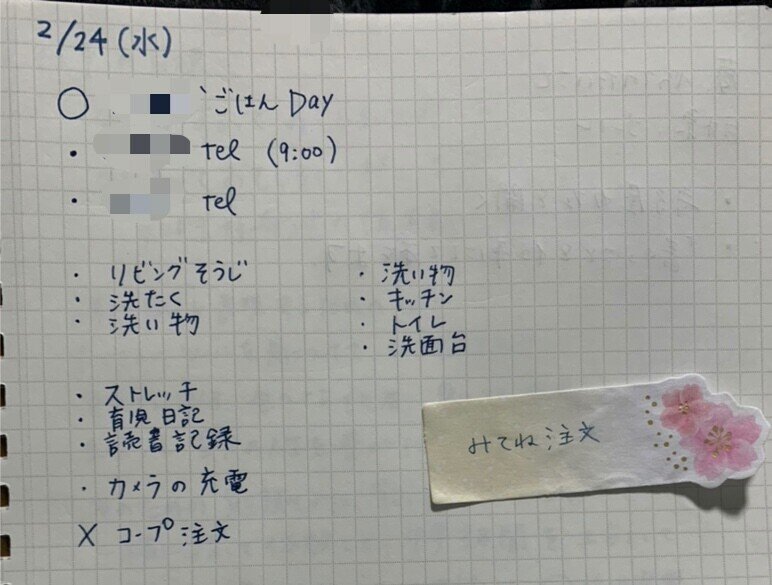 2/24 (水)
○ ごはん Day
・ tel (9:00)
・ tel
・リビングそうじ
・洗たく
・洗い物
・洗い物
・キッチン
・トイレ
・洗面台
・ストレッチ
・育児日記
・読書記録
・カメラの充電
X コープ注文
みてね注文